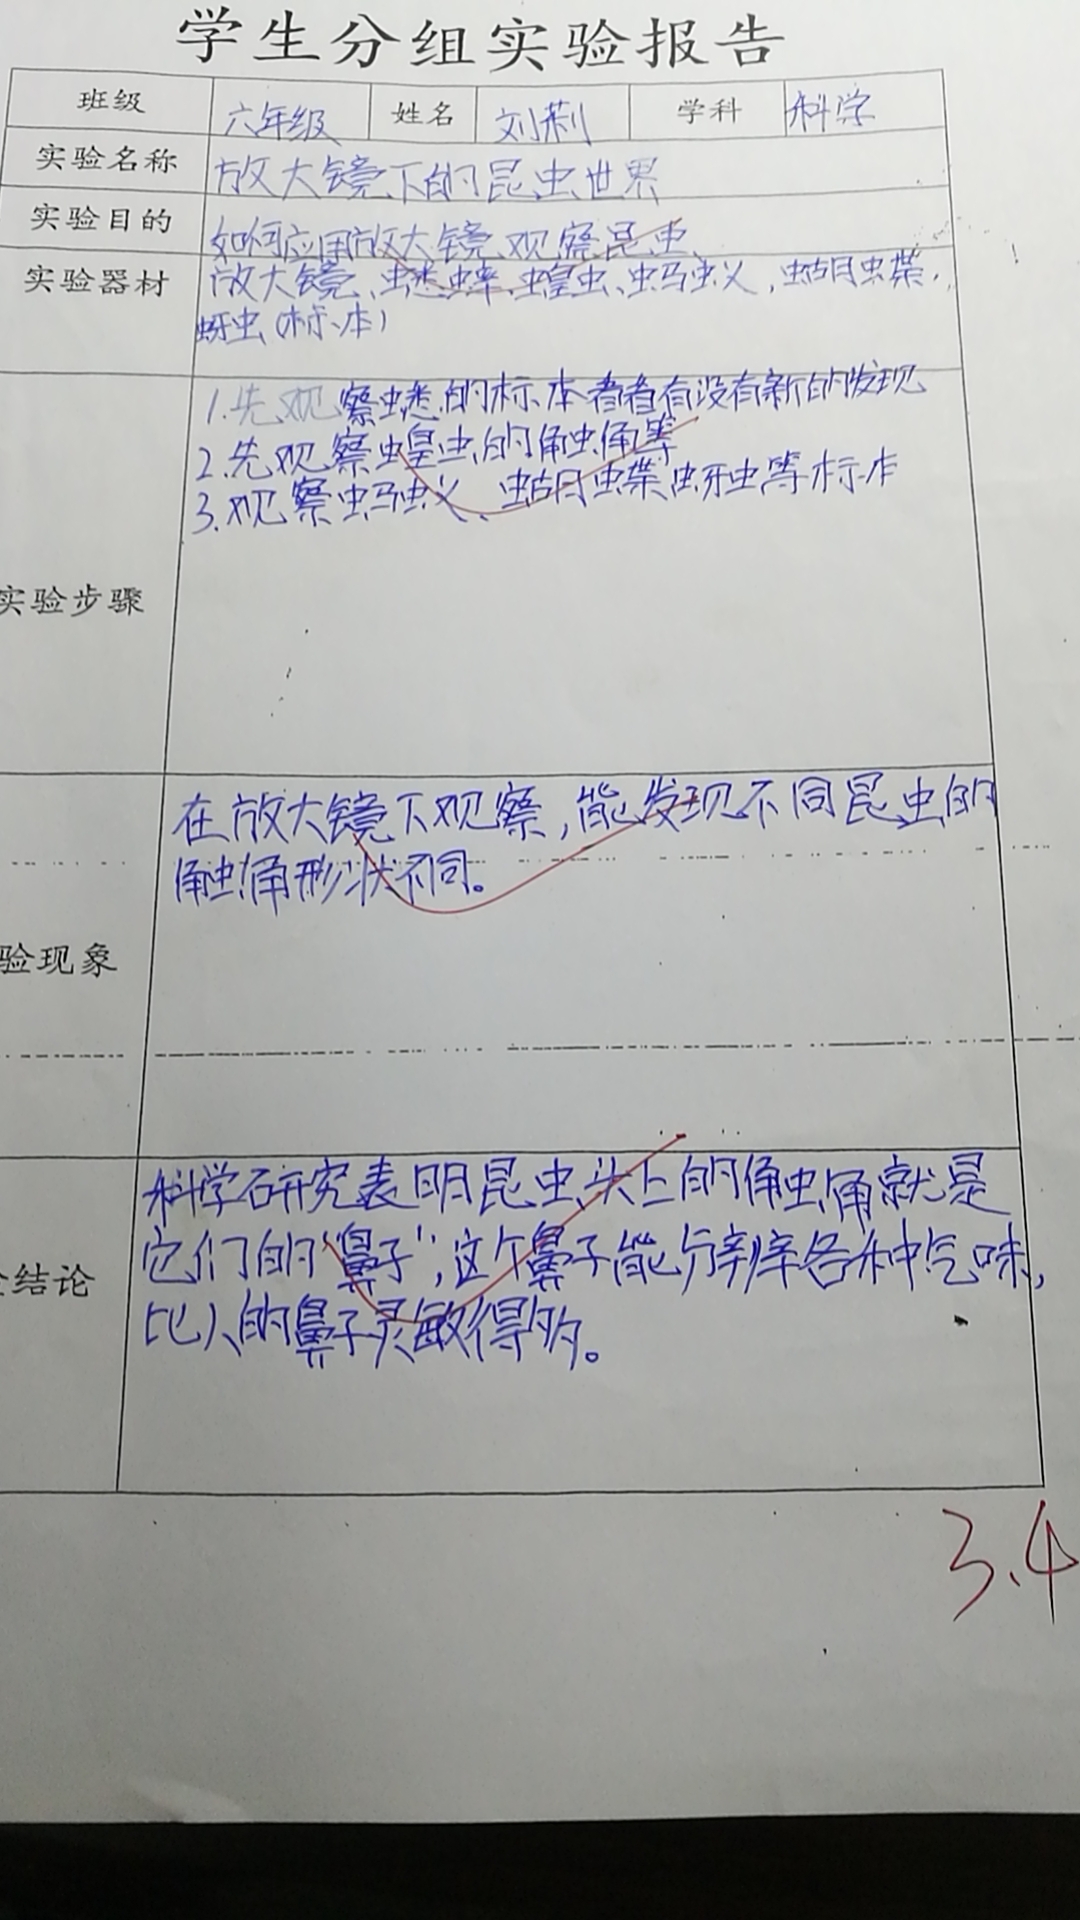 学生分组实验报告
班级 六年级 姓名 刘莉 学科 科学
实验名称 放大镜下的昆虫世界
实验目的 如何应用放大镜观察昆虫
实验器材 放大镜、蟋蟀、蝗虫、蚂蚁,蝴蝶,
蚜虫(标本)
1.先观察蟋的标本看看有没有新的发现
2.先观察蝗虫的触角等
3.观察蚂蚁、蝴蝶蚜虫等标本
实验步骤
在放大镜下观察,能发现不同昆虫的
触角形状不同。
验现象
科学研究表明昆虫头上的触角就是
它们的“鼻子”,这个鼻子能分辨各种气味,
结论
比人的鼻子灵敏得多。
3.4